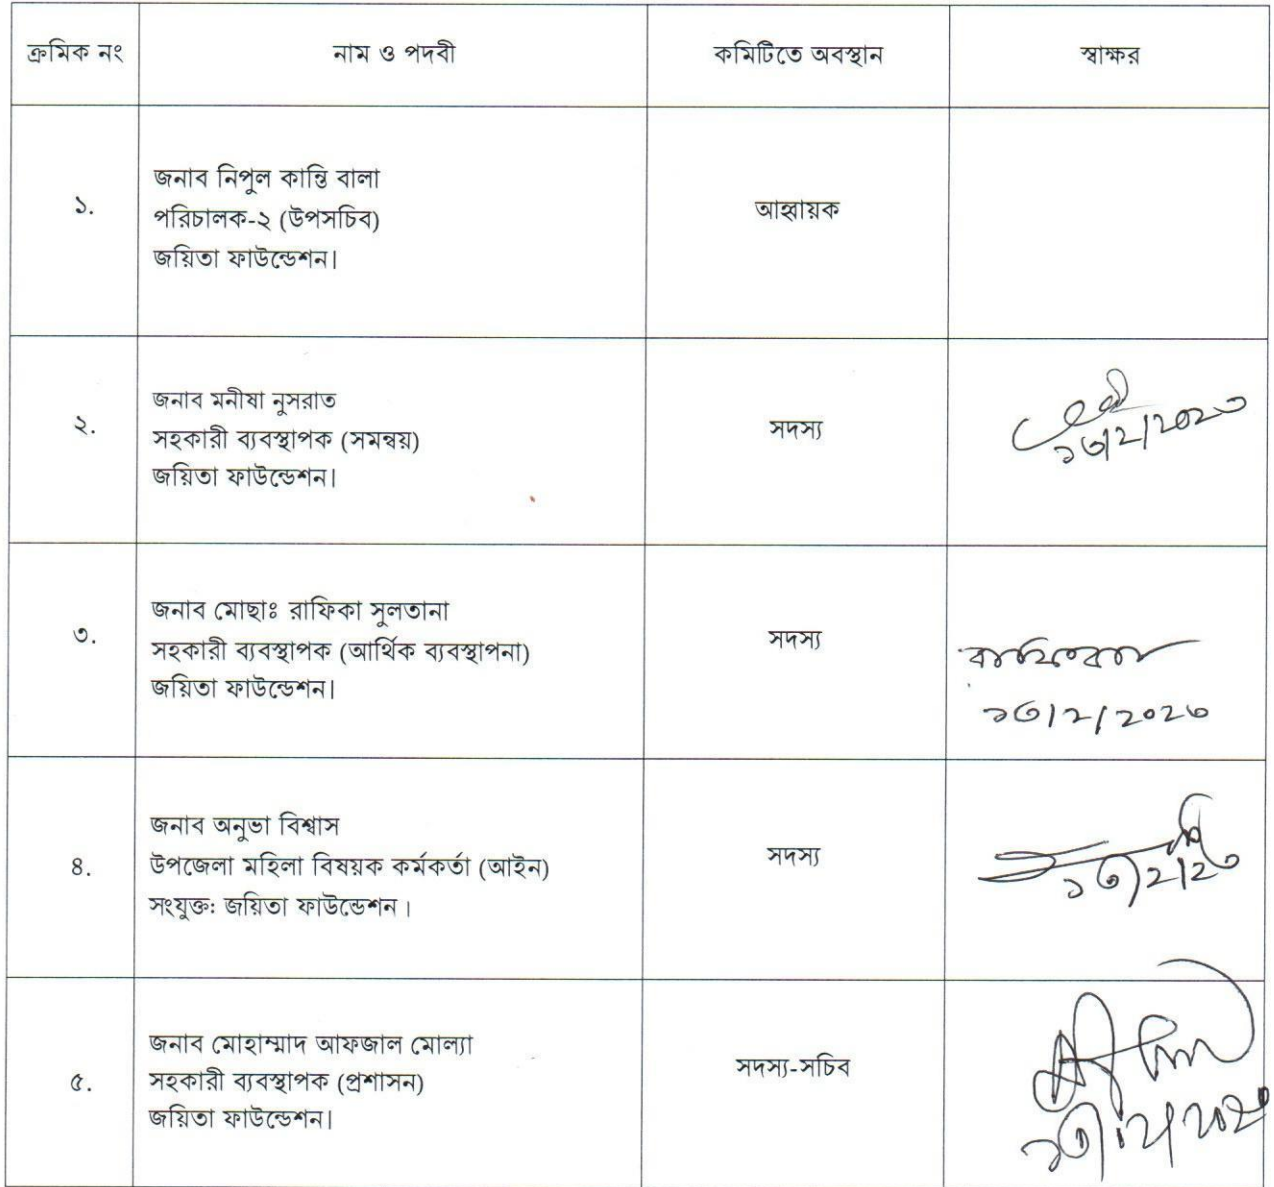 ক্রমিক নং নাম ও পদবী কমিটিতে অবস্থান স্বাক্ষর
১. জনাব নিপুল কান্তি বালা
পরিচালক-২ (উপসচিব)
জয়িতা ফাউন্ডেশন।
আহ্বায়ক
২. জনাব মনীষা নুসরাত
সহকারী ব্যবস্থাপক (সমন্বয়)
জয়িতা ফাউন্ডেশন।
সদস্য
৩. জনাব মোছাঃ রাফিকা সুলতানা
সহকারী ব্যবস্থাপক (আর্থিক ব্যবস্থাপনা)
জয়িতা ফাউন্ডেশন।
সদস্য
১৩/২/২০২৩
৪. জনাব অনুভা বিশ্বাস
উপজেলা মহিলা বিষয়ক কর্মকর্তা (আইন)
সংযুক্ত: জয়িতা ফাউন্ডেশন।
সদস্য
১৩/২/২৩
৫. জনাব মোহাম্মাদ আফজাল মোল্যা
সহকারী ব্যবস্থাপক (প্রশাসন)
জয়িতা ফাউন্ডেশন।
সদস্য-সচিব